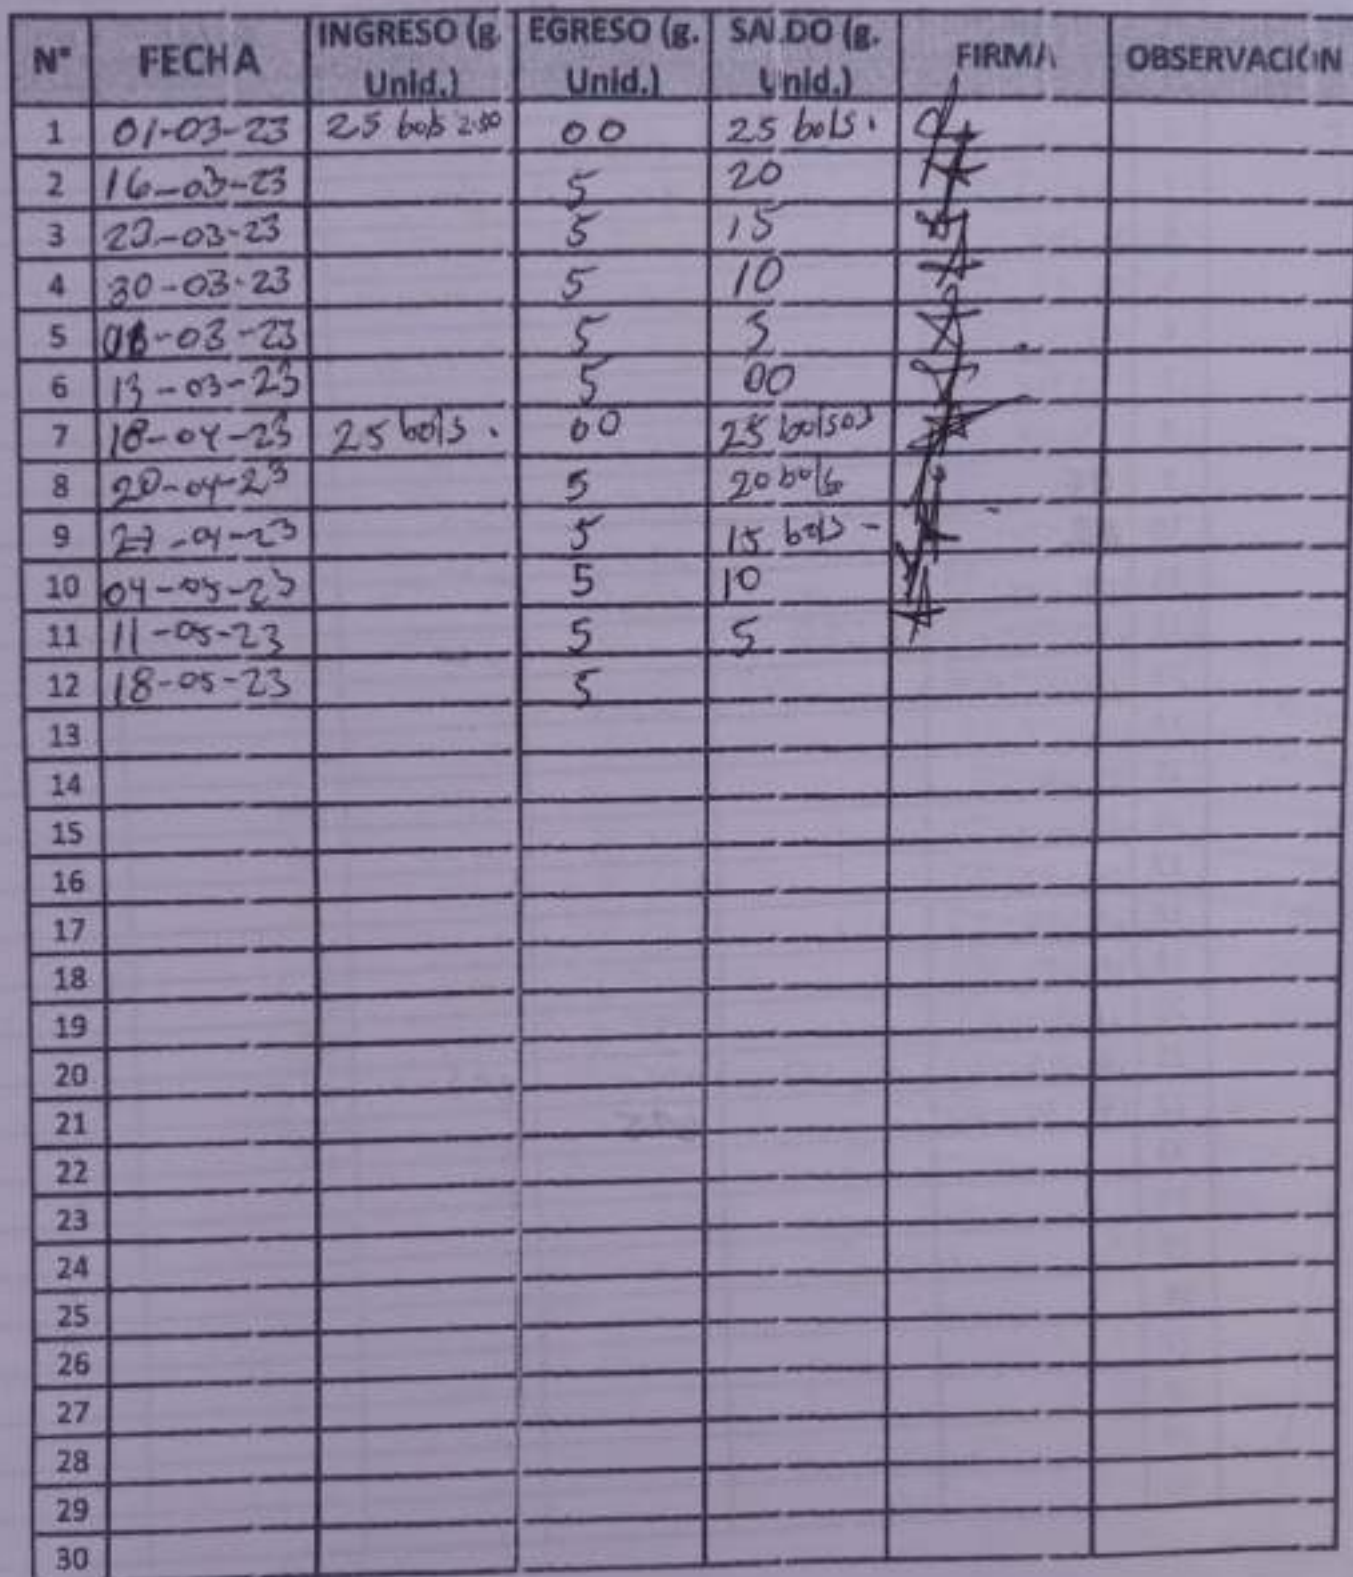 N° FECHA INGRESO (g. Unid.) EGRESO (g. Unid.) SALDO (g. Unid.) FIRMA OBSERVACIÓN
1 01-03-23 25 bols 2.50 00 25 bols.
2 16-03-23 5 20
3 23-03-23 5 15
4 30-03-23 5 10
5 -03-23 5 5
6 13-03-23 5 00
7 18-04-23 25 bols. 00 25 bolsas
8 20-04-23 5 20 bols
9 27-04-23 5 15 bols -
10 04-05-23 5 10
11 11-05-23 5 5
12 18-05-23 5
13
14
15
16
17
18
19
20
21
22
23
24
25
26
27
28
29
30